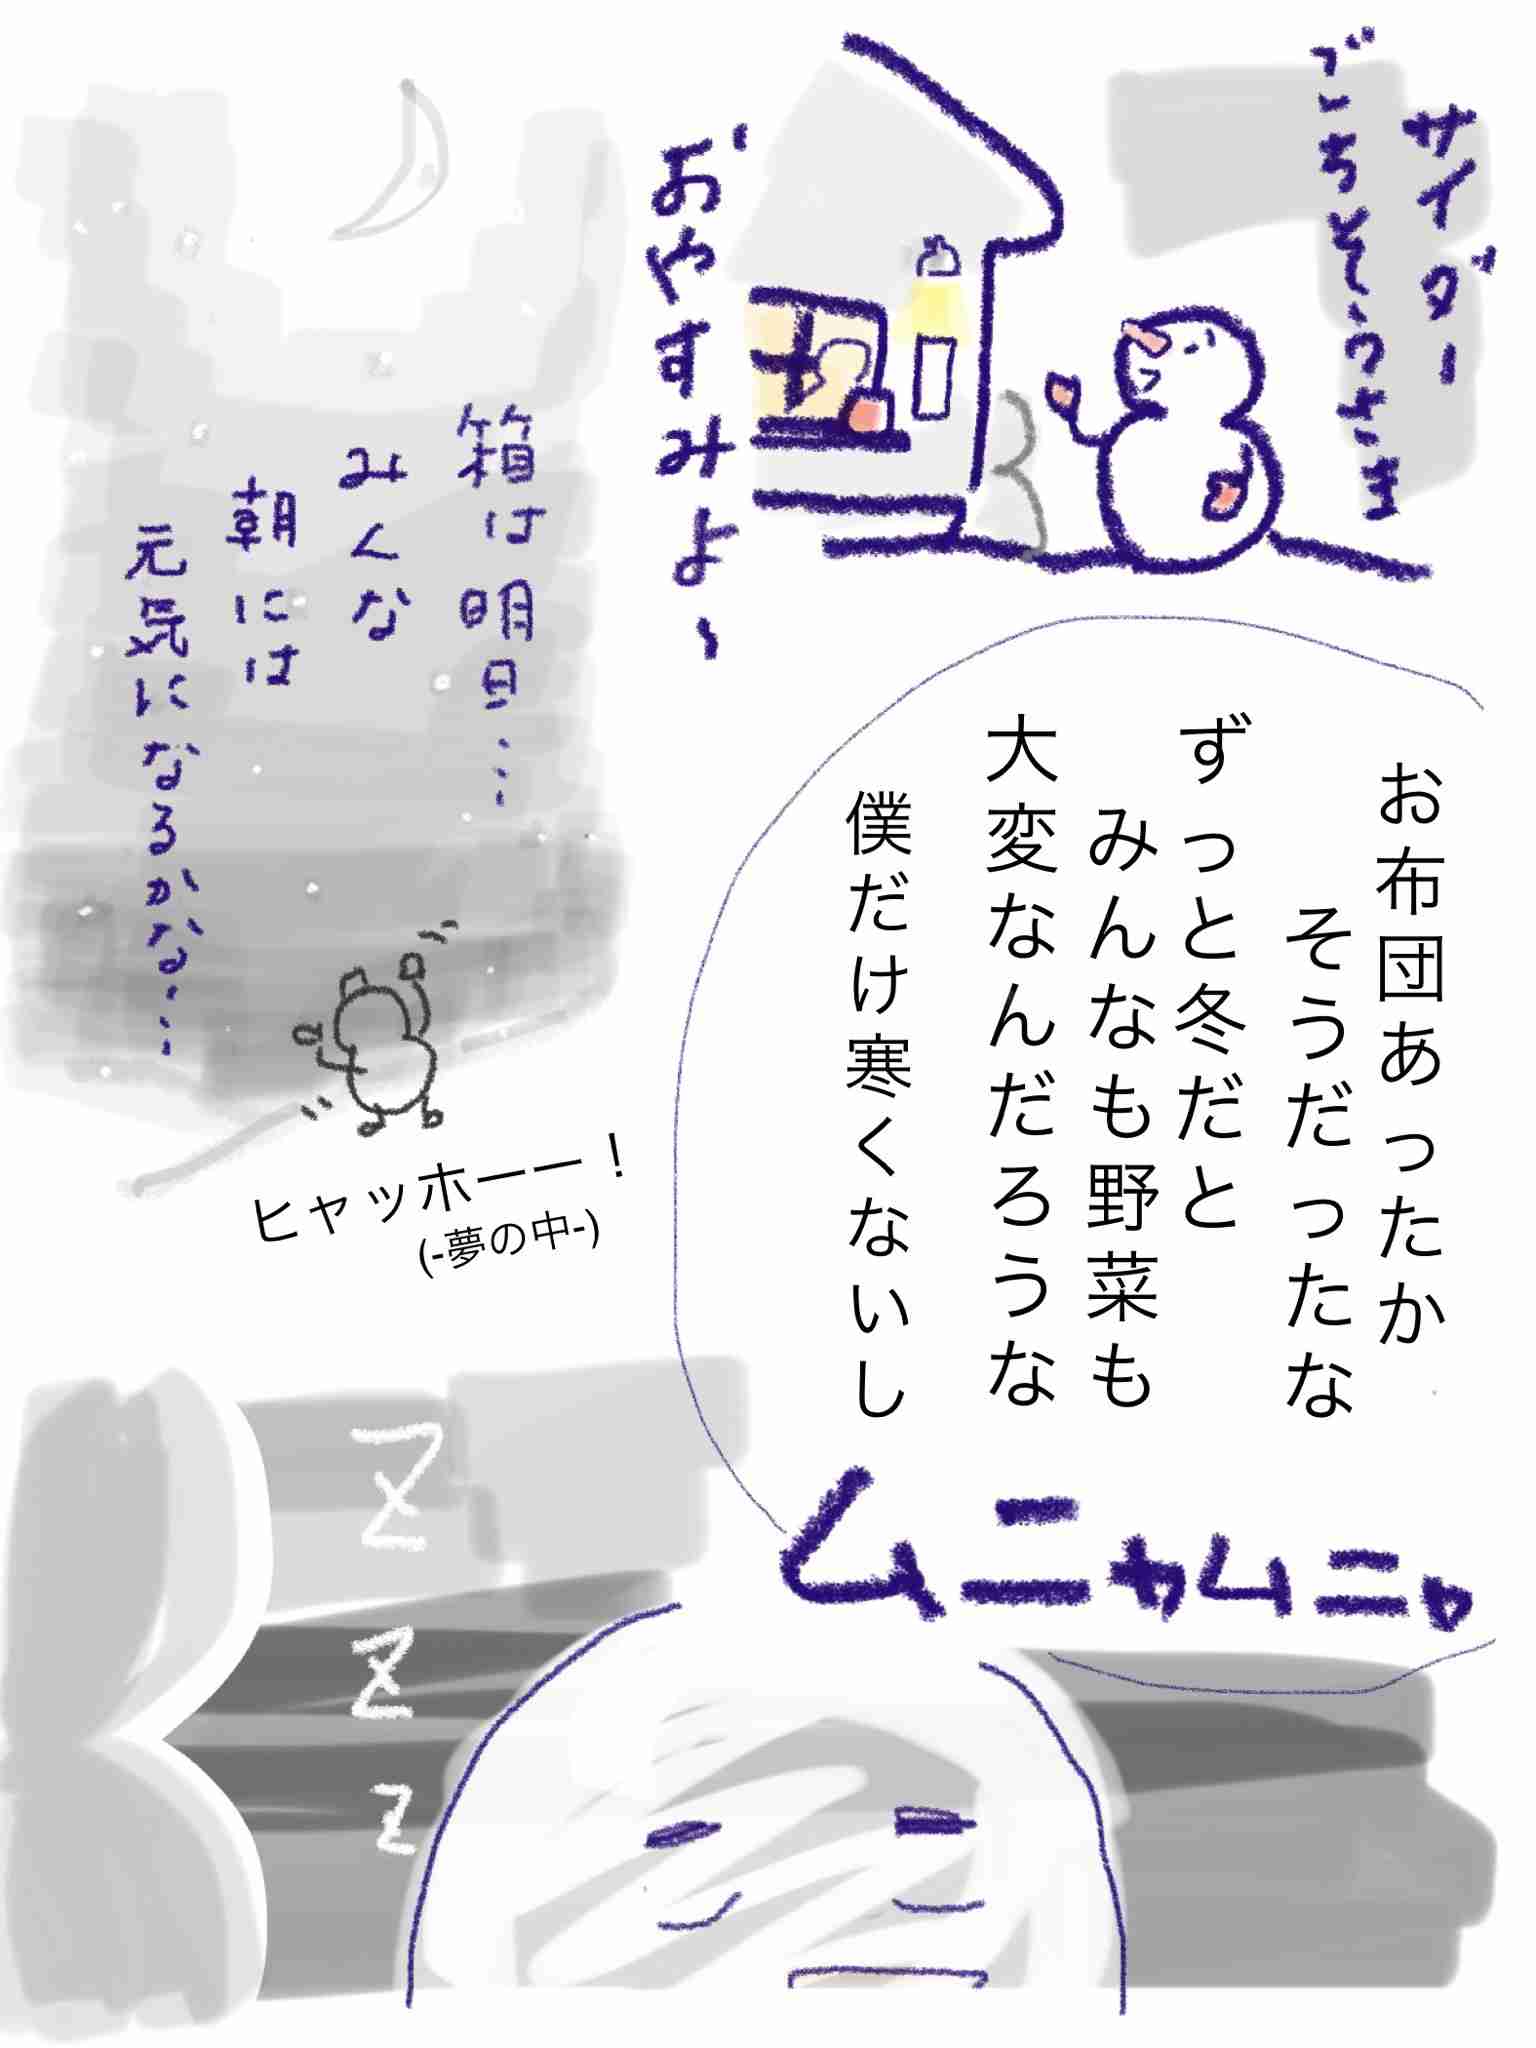 サイダー
ごちそうさま
おやすみよ〜
お布団あったか
そうだったな
ずっと冬だと
みんなも野菜も
大変なんだろうな
僕だけ寒くないし
ムニャムニャ
箱は明日…
みんな
朝には
元気になるかな…
ヒャッホーー！
(-夢の中-)
Z
Z
Z